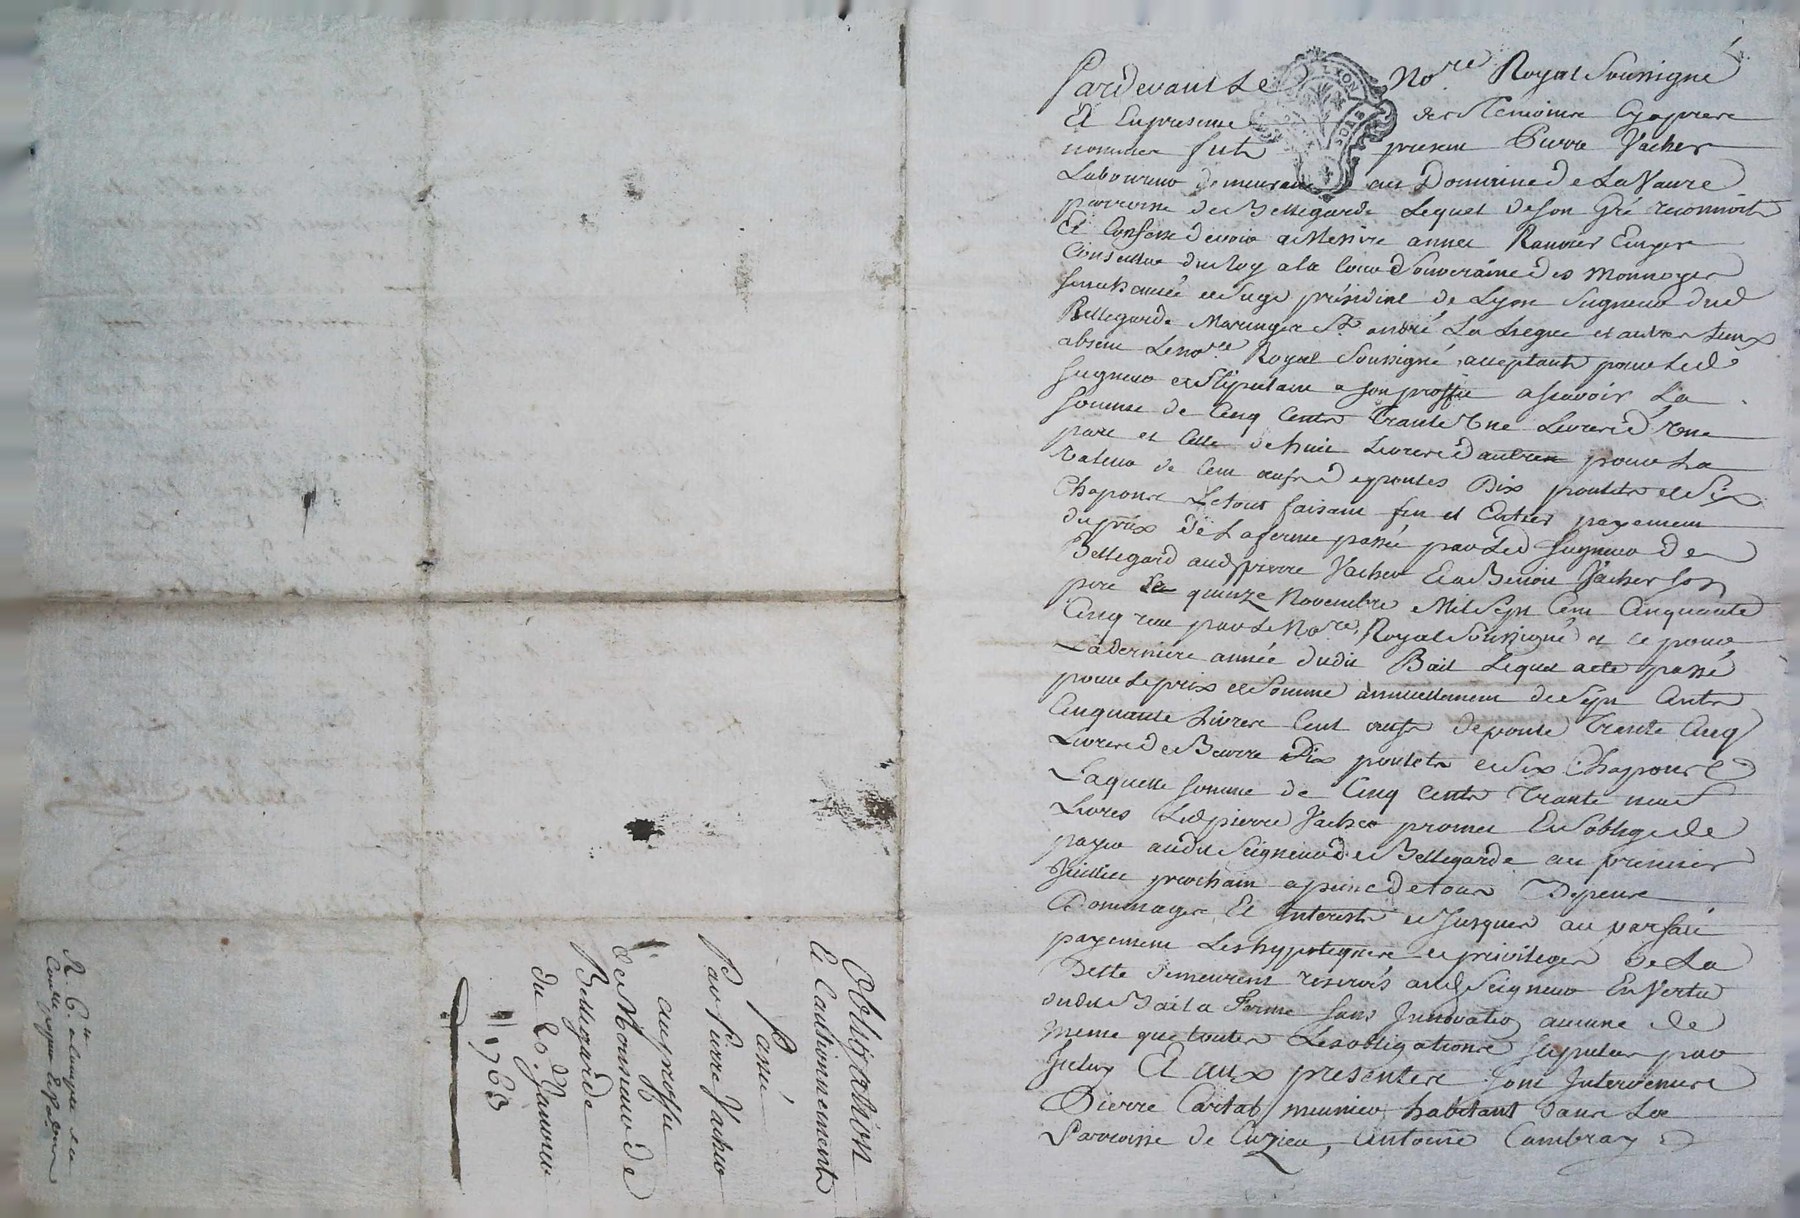 Pardevant Le No.re Royal Soussigné
Et En presence des Temoins Cy apres
nommes fut present Pierre Vacher
Laboureur demeurant au Domaine de La Vaure
parroisse de Bellegarde Lequel de son Gré reconnoit
Et Confesse devoir a Messire annet Ranvier Ecuyer
Conseiller du Roy a la Cour Souveraine des Monnoyes
senechaussée et Siege présidial de Lyon Seigneur dud
Bellegarde Maringes St. andré La Liegue et autres lieux
absent Le no.re Royal Soussigné acceptant pour Led
seigneur et Stipulant a son proffit a sçavoir La
somme de Cinq Cents Trante Une Livres d'Une
part et Celle de huit Livres d'autre pour La
Valeur de Cent œufs de poules Dix poulets et Six
Chapons Le tout faisant fin et Entier payement
du prix de La ferme passé par Led Seigneur de
Bellegard aud pierre Vacher Et a Benoit Vacher son
pere Le quinze Novembre Mil Sept Cent Cinquante
Cinq reçu par Le No.re Royal Soussigné et ce pour
La derniére année dudit Bail Lequel acte passé
pour Le prix et Somme annuellement de Sept Cents
Cinquante Livres Cent œufs de poule Trente Cinq
Livres de Beurre Dix poulets et Six Chapons
Laquelle somme de Cinq Cents Trante neuf
Livres Led pierre Vacher promet Et S'oblige de
payer audit Seigneur de Bellegarde au premier
Juillet prochain a peine de tous Depens
Dommages Et Interests et Jusques au parfait
payement Les hypoteques et privileges de La
Dette demeurent réservés aud Seigneur En Vertu
dudit Bail a Ferme sans Innovation aucune de
meme que toutes Les obligations stipulées par
Iceluy Et aux presentes sont Intervenus
Pierre Cartal meunier habitant dans La
Parroisse de Cuzieu, antoine Cambray
Obligation
Et Cautionnement
Passé
Par Pierre Vacher
au proffit
de Monsieur de
Bellegarde
du 20 Janvier
1763